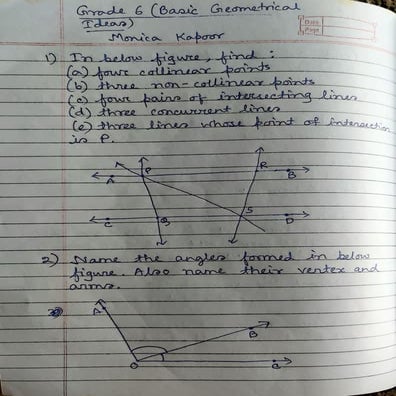 Grade 6 (Basic Geometrical
Ideas)
Monica Kapoor
1) In below figure, find :
(a) four collinear points
(b) three non-collinear points
(c) four pairs of intersecting lines
(d) three concurrent lines
(e) three lines whose point of intersection
is P.
P R
A B
C Q S D
2) Name the angles formed in below
figure. Also name their vertex and
arms.
A
B
O C